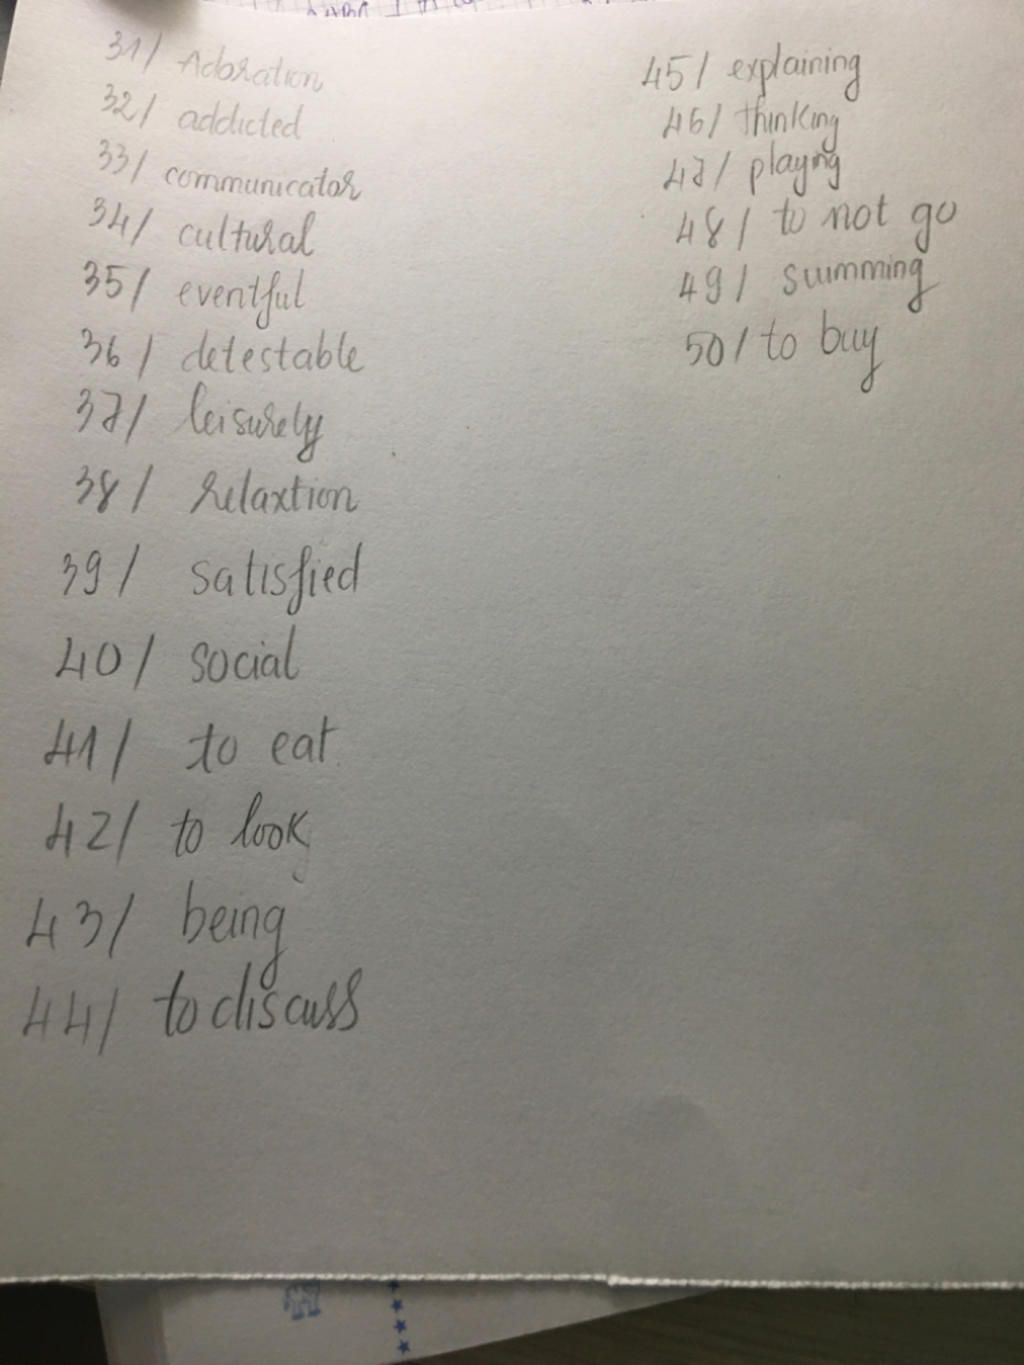 31/ Adoration
32/ addicted
33/ communicator
34/ cultural
35/ eventful
36/ detestable
37/ leisurely
38/ relaxtion
39/ satisfied
40/ social
41/ to eat
42/ to look
43/ being
44/ to discuss
45/ explaining
46/ thinking
47/ playing
48/ to not go
49/ swimming
50/ to buy